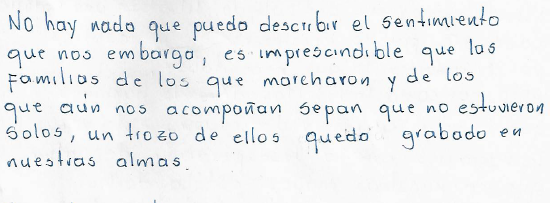 No hay nada que pueda describir el sentimiento
que nos embarga, es imprescindible que las
familias de los que marcharon y de los
que aún nos acompañan sepan que no estuvieron
solos, un trozo de ellos quedo grabado en
nuestras almas.